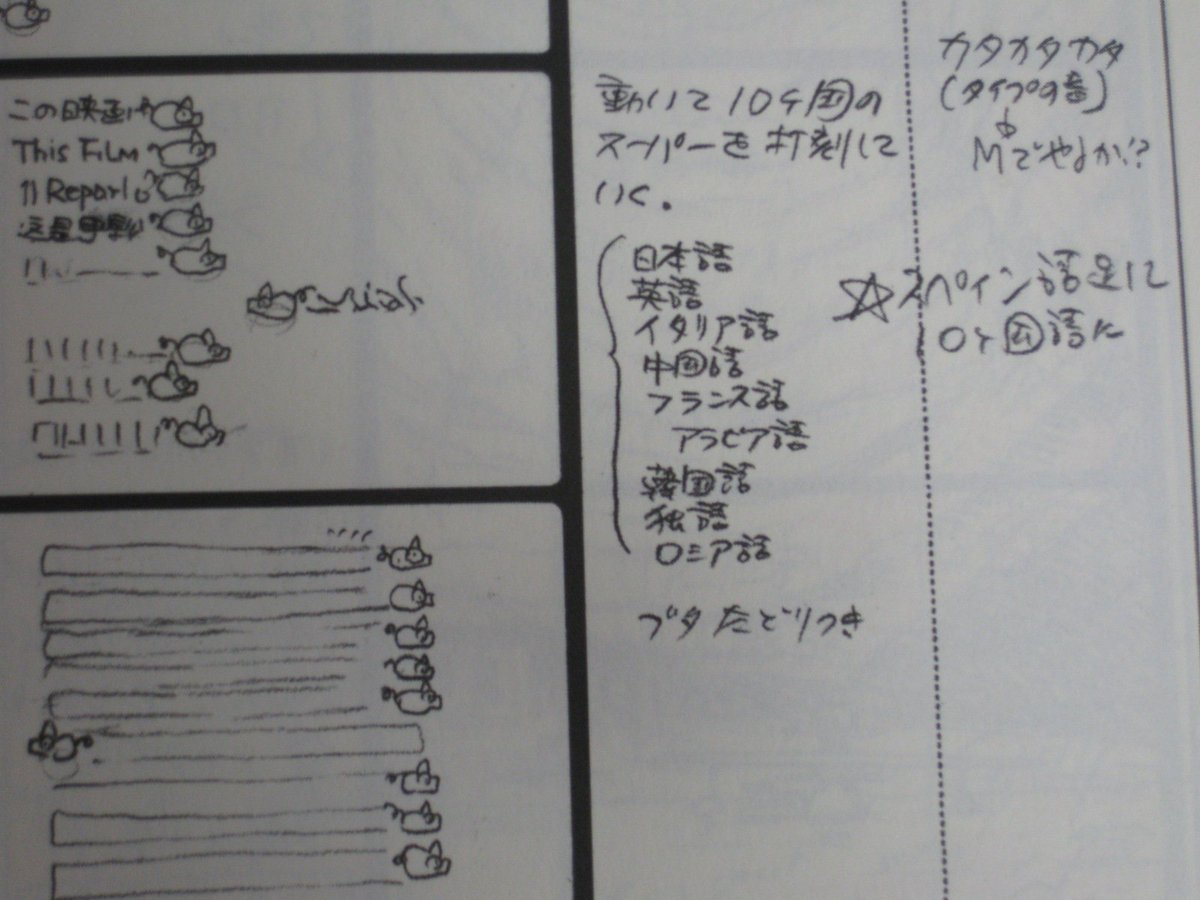 この映画は
This FiLM
Il Reparlo
這是電影
動いて10ヶ国の
スーパーを打刻して
いく。
日本語
英語
イタリア語
中国語
フランス語
アラビア語
韓国語
独語
ロシア語
ブタたどりつき
カタカタカタ
(タイプの音)
Mでやるか?
☆スペイン語足して
10ヶ国語に